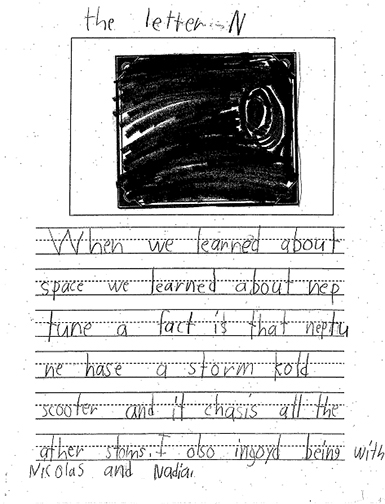 the letter N
When we learned about
space we learned about nep
tune a fact is that neptu
ne hase a storm kold
scooter and it chasis all the
ather stoms. I olso ingoyd being with
Nicolas and Nadia.